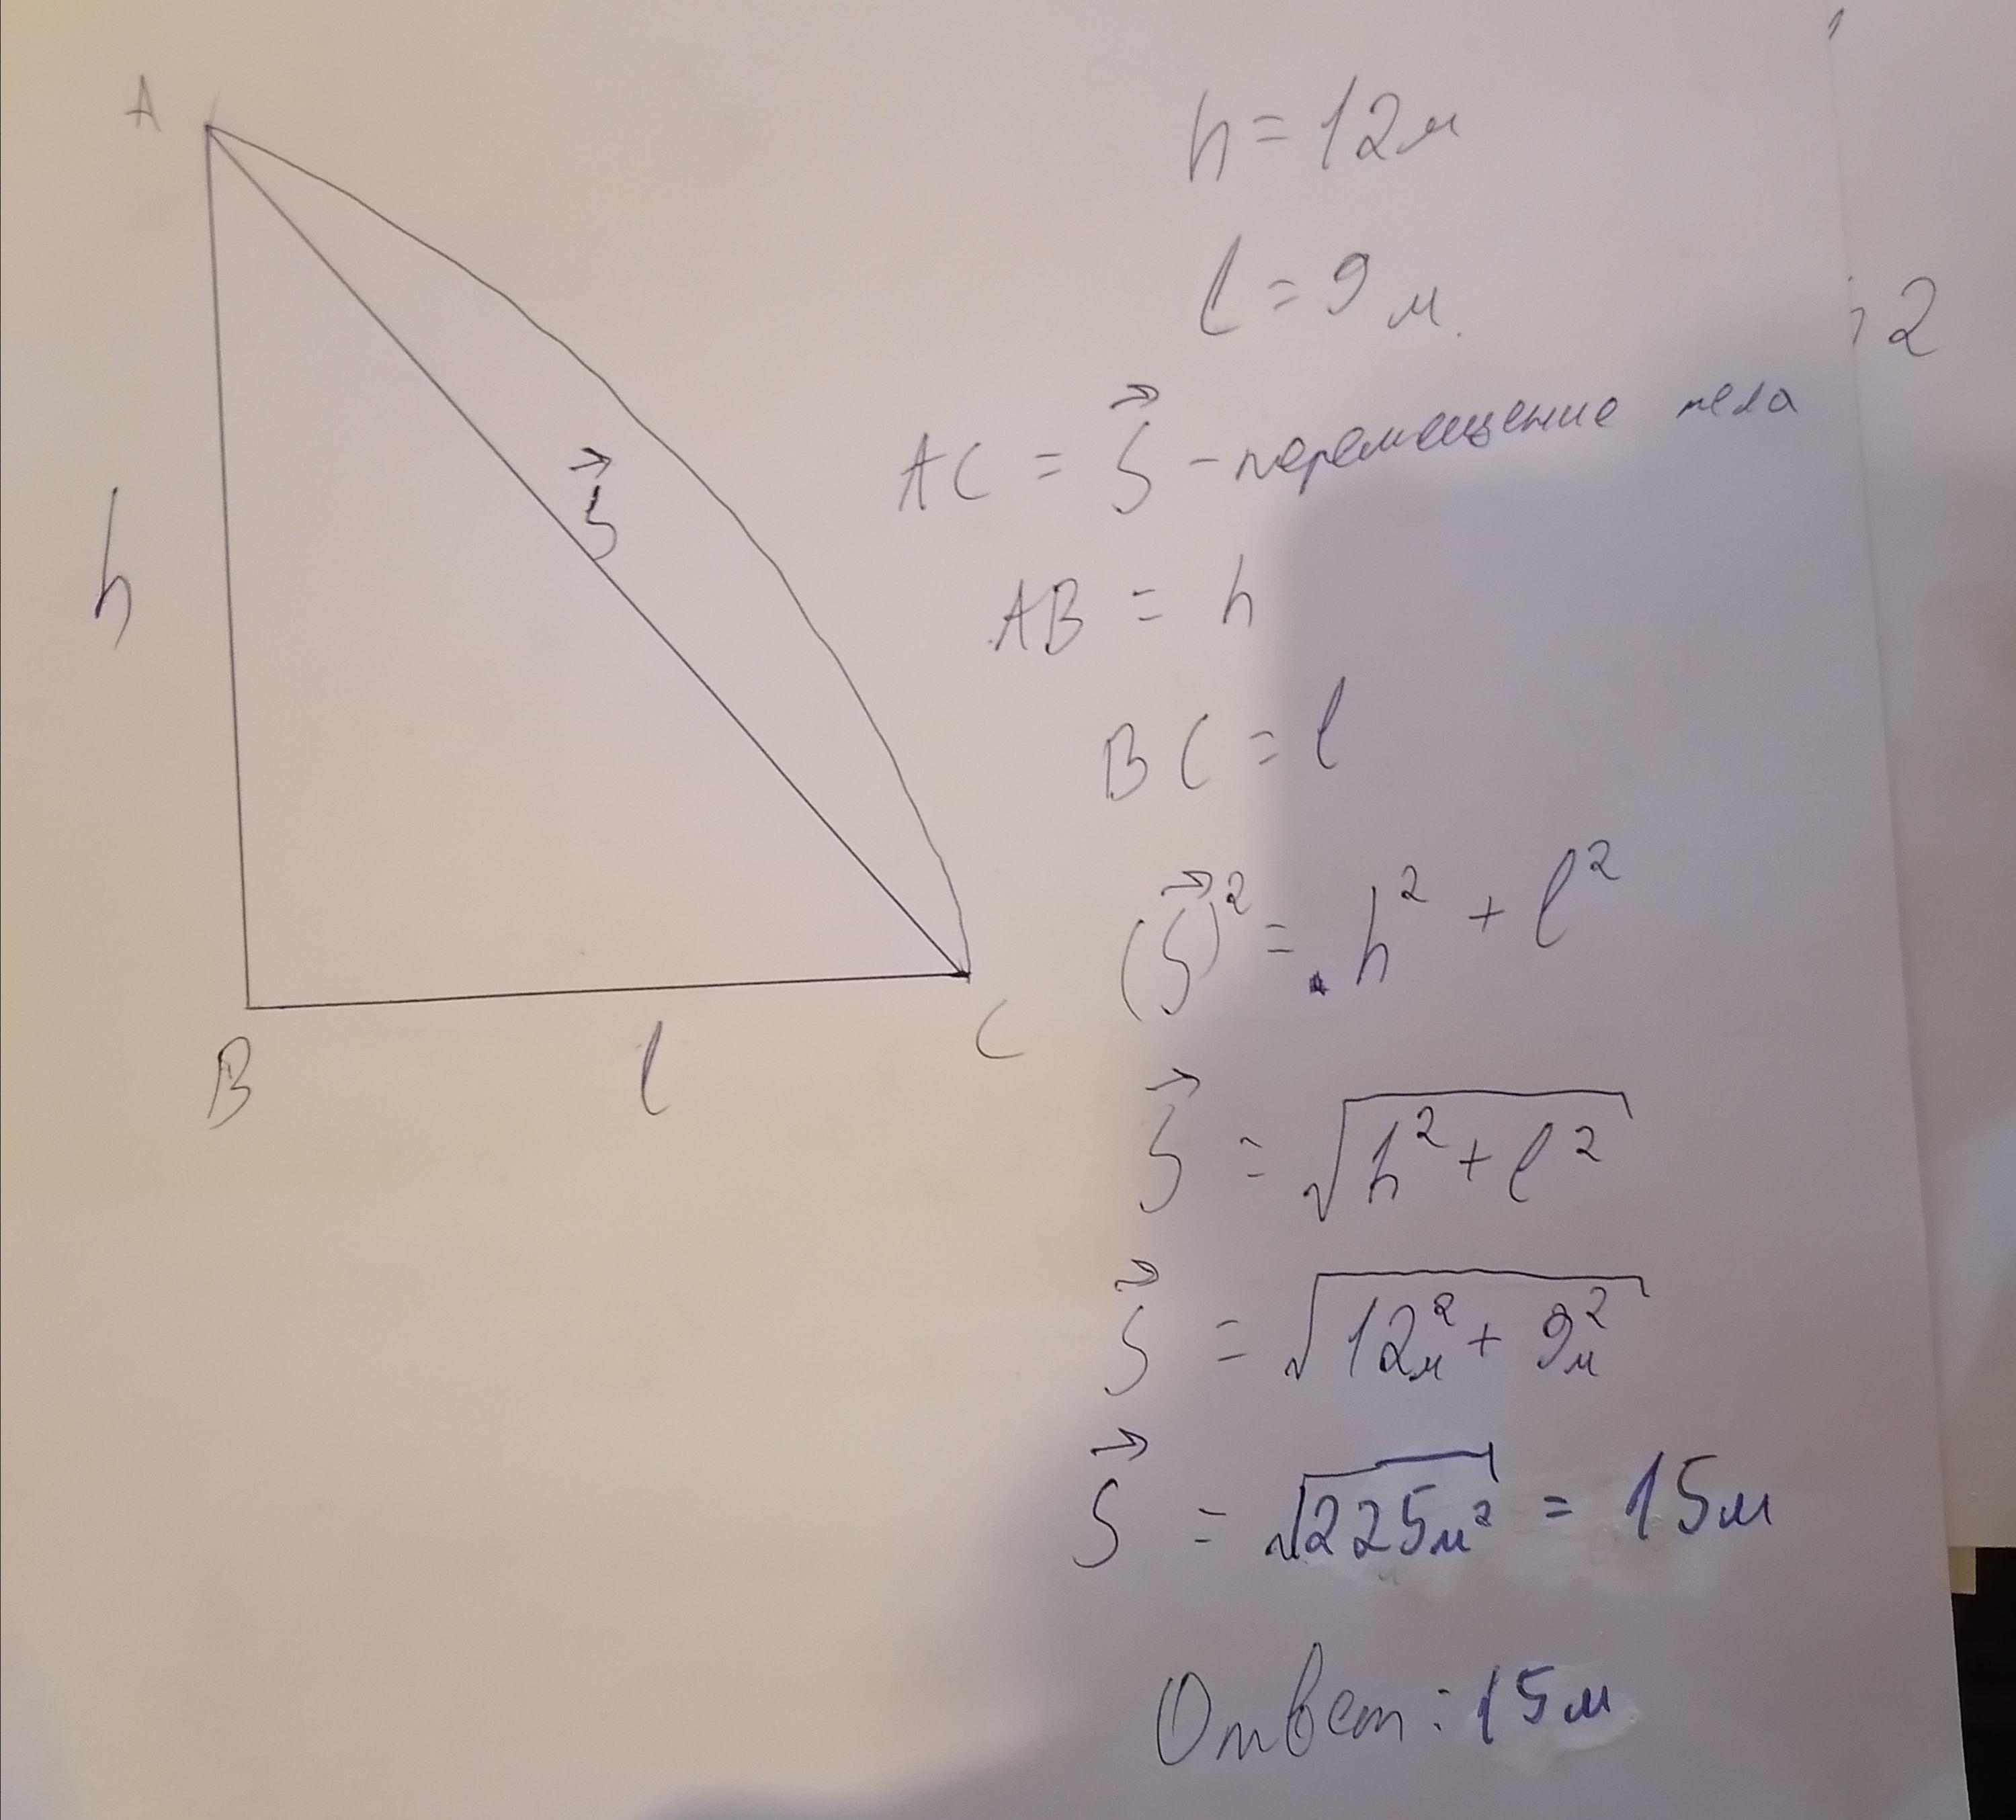 A
h
B
l
C
S⃗
h = 12м
l = 9 м.
AC = S⃗ - перемещение тела
AB = h
BC = l
(S⃗)² = h² + l²
S⃗ = √(h² + l²)
S⃗ = √(12м² + 9м²)
S⃗ = √(225м²) = 15м
Ответ: 15м
2